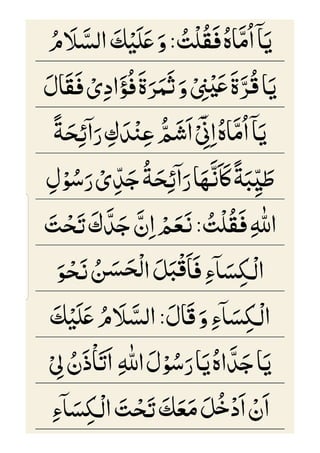 يَآ اُمَّاهُ فَقُلْتُ: وَ عَلَيْكَ السَّلَامُ
يَا قُرَّةَ عَيْنِيْ وَ ثَمَرَةَ فُؤَادِيْ فَقَالَ
يَآ اُمَّاهُ اِنِّيْٓ اَشَمُّ عِنْدَكِ رَآئِحَةً
طَيِّبَةً كَاَنَّهَا رَآئِحَةُ جَدِّيْ رَسُوْلِ
اللهِ فَقُلْتُ: نَعَمْ اِنَّ جَدَّكَ تَحْتَ
الْكِسَآءِ فَاَقْبَلَ الْحَسَنُ نَحْوَ
الْكِسَآءِ وَ قَالَ: السَّلَامُ عَلَيْكَ
يَا جَدَّاهُ يَا رَسُوْلَ اللهِ اَتَاْذَنُ لِيْ
اَنْ اَدْخُلَ مَعَكَ تَحْتَ الْكِسَآءِ